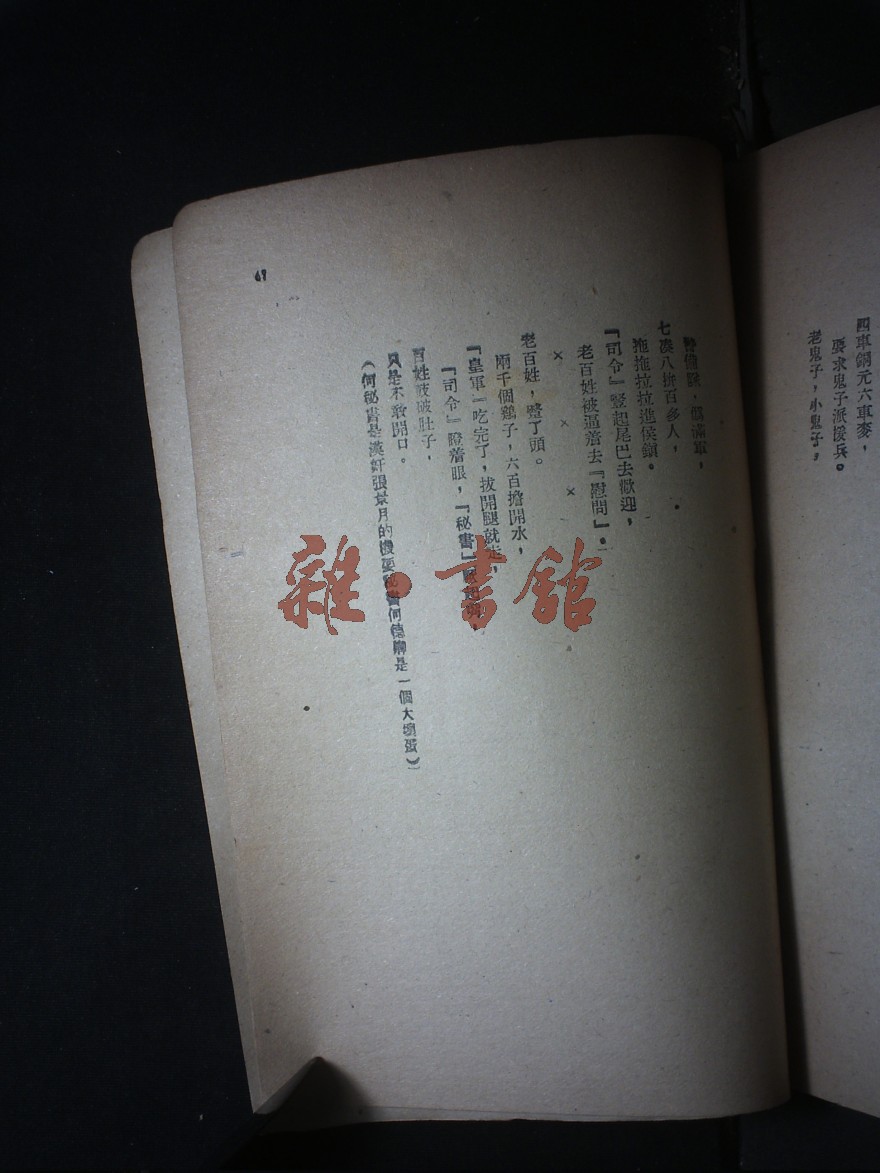 四車銅元六車麥，
要求鬼子派援兵。
老鬼子，小鬼子，
滿軍，
七湊八拚百多人，
拖拖拉拉進侯鎮。
『司令』豎起尾巴去歡迎，
老百姓被逼着去『慰問』。
× × ×
老百姓，蹩了頭。
兩千個鷄子，六百擔開水，
『皇軍』吃完了，拔開腿就走，
『司令』瞪着眼，『秘書』
百姓破肚子，
只是不敢開口。
（何秘書是漢奸張景月的機要秘書何德是一個大壞蛋）
61
雜·書館